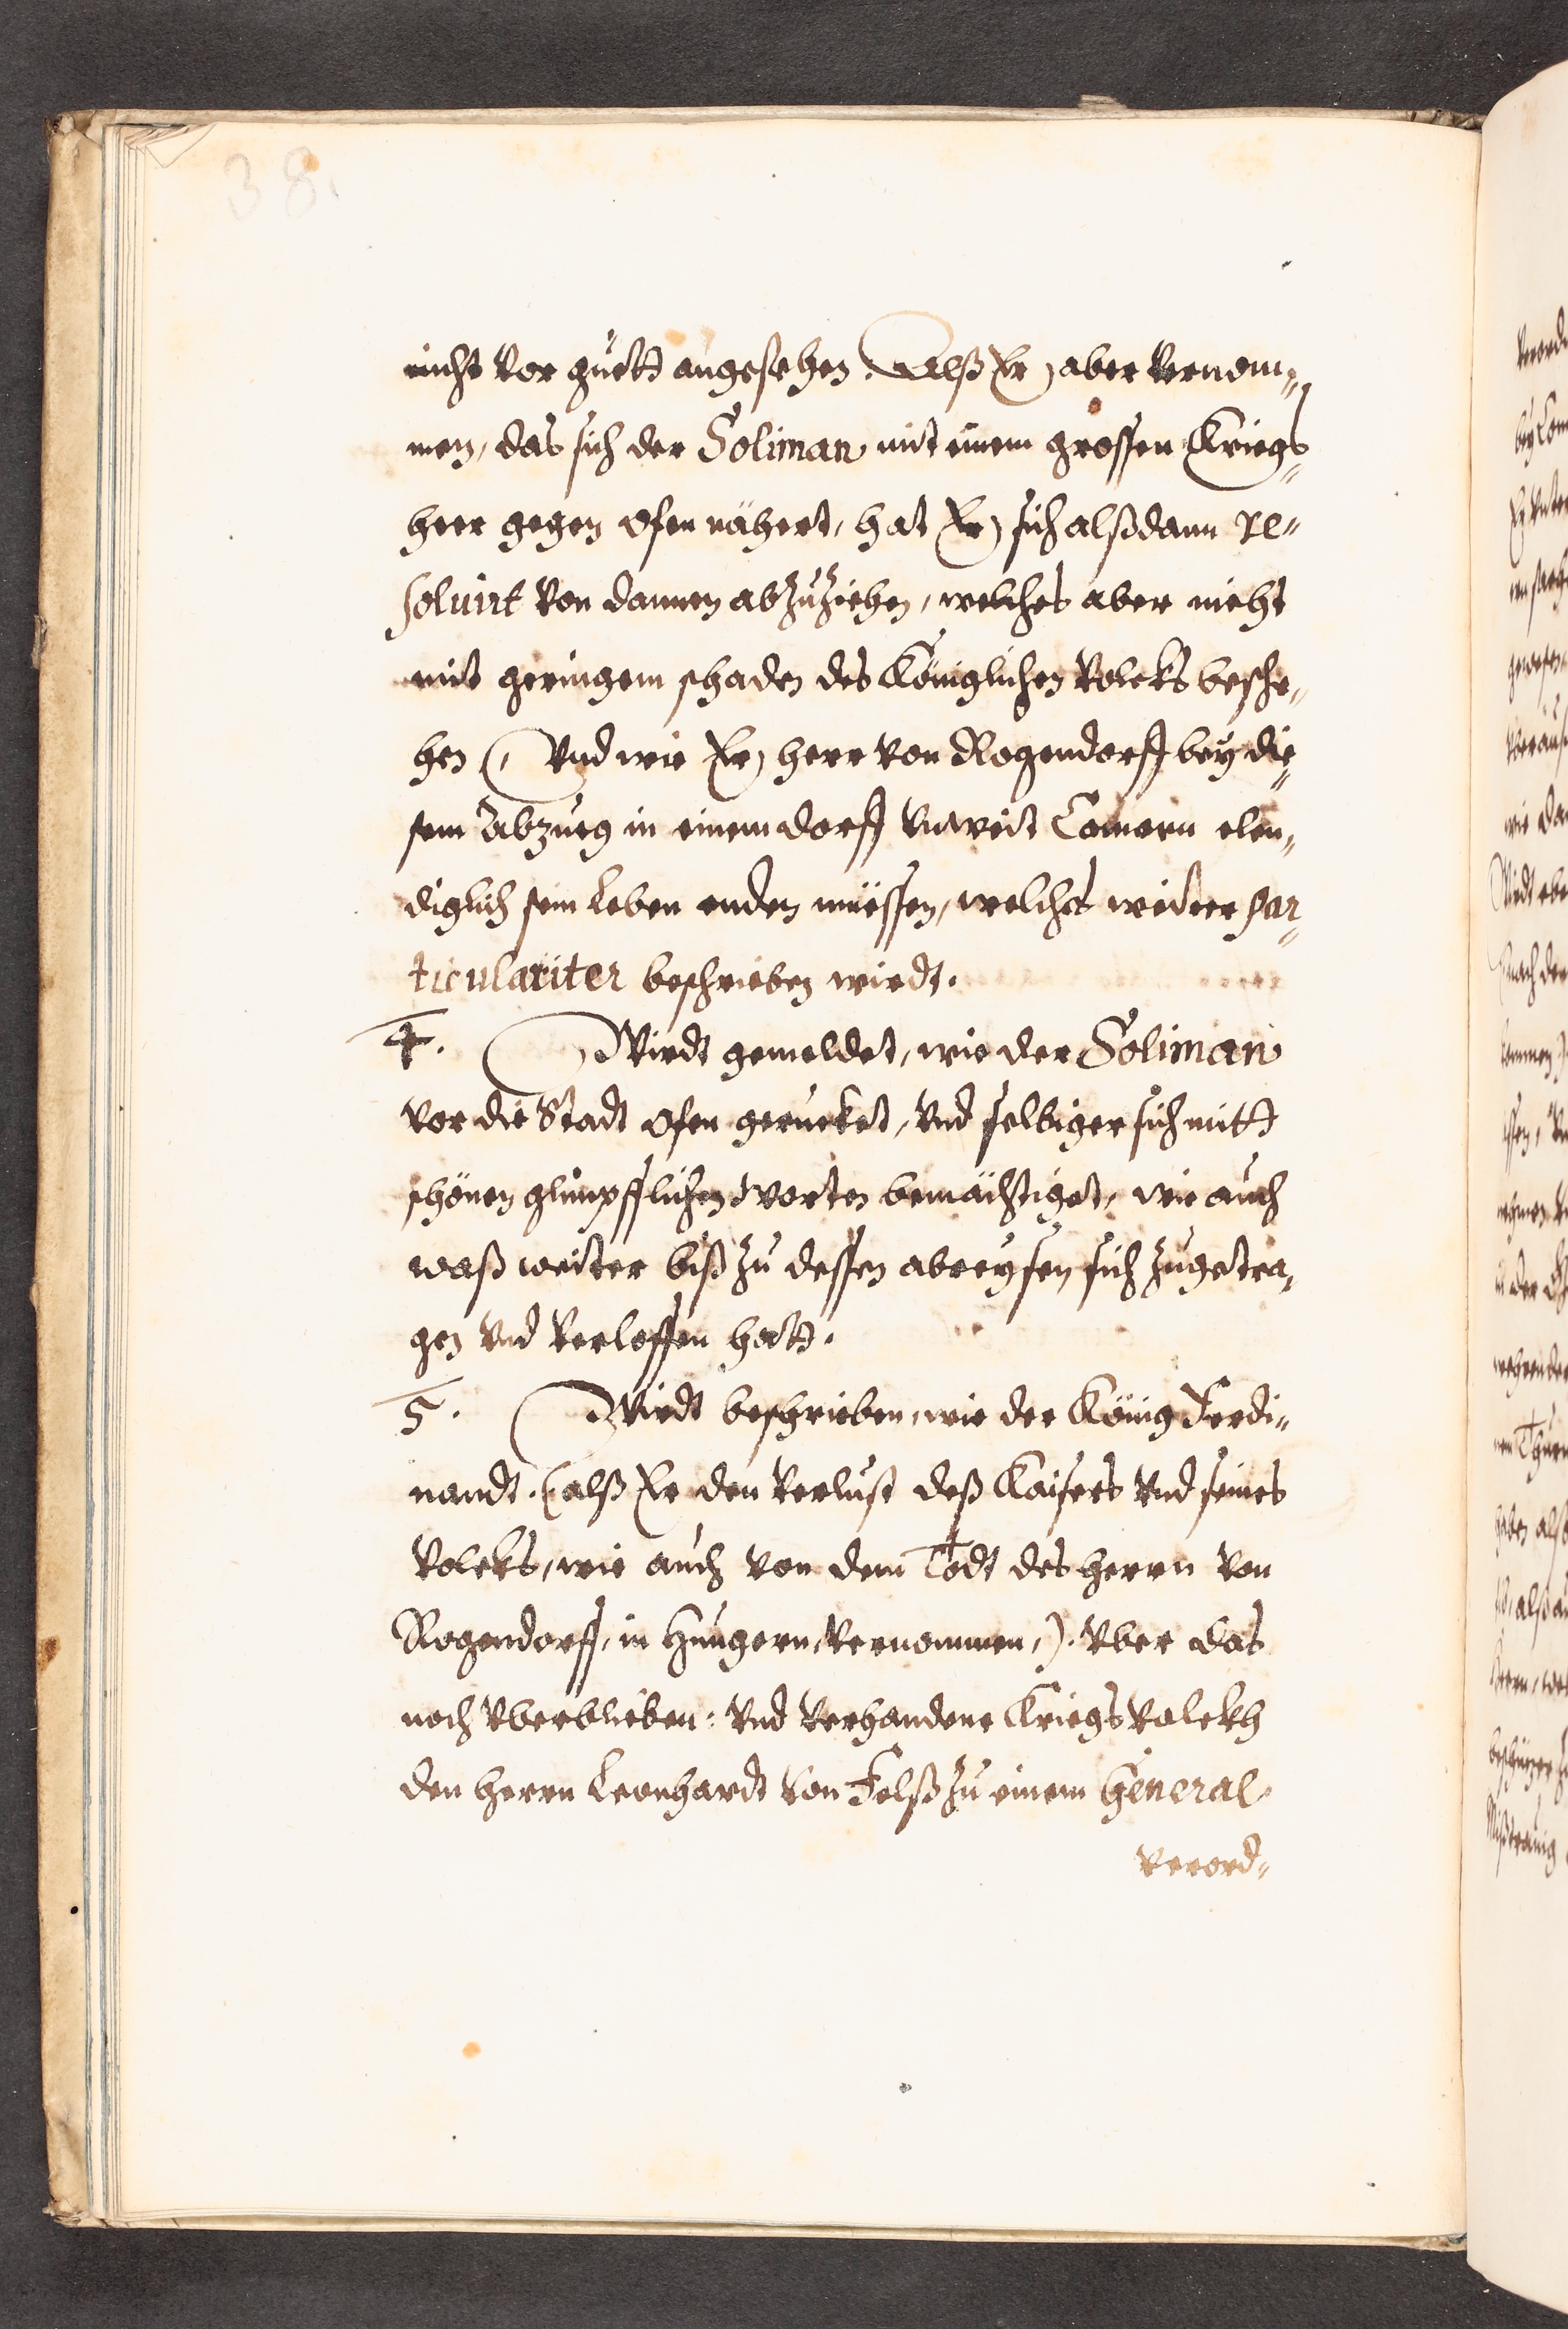 38.
nicht vor guett angesehen. Alß Er aber vernom=
men, das sich der Soliman mit einem grossen Kriegs=
heer gegen Ofen nähert, hat Er sich alßdann re=
soluirt von dannen abzuziehen, welches aber nicht
mit geringem schaden des Königlichen Volcks besche,
hen (, Vnd wie Er herr von Rogendorff bey die=
sem Abzueg in einem dorff vnweit Comorn elen,,
diglich sein Leben enden müessen, welches weiter par=
ticulariter beschrieben wirdt.
4. Wirdt gemeldet, wie der Soliman
vor die Stadt Ofen gerucket, vnd selbiger sich mitt
schönen glimpfflichen worten bemächtiget, wie auch
waß weiter biß zu dessen abreysen sich zugetra,
gen vnd verloffen hatt.
5. Wirdt beschrieben, wie der König Ferdi=
nandt. (alß Er den verlust deß Kaisers vnd seines
Volcks, wie auch von dem Todt des herrn von
Rogendorff, in Hungern, vernommen,). vber das
noch vberblieben: vnd verhandene Kriegs Volckh
den herrn Leonhardt von Felß zu einem General.
verord=